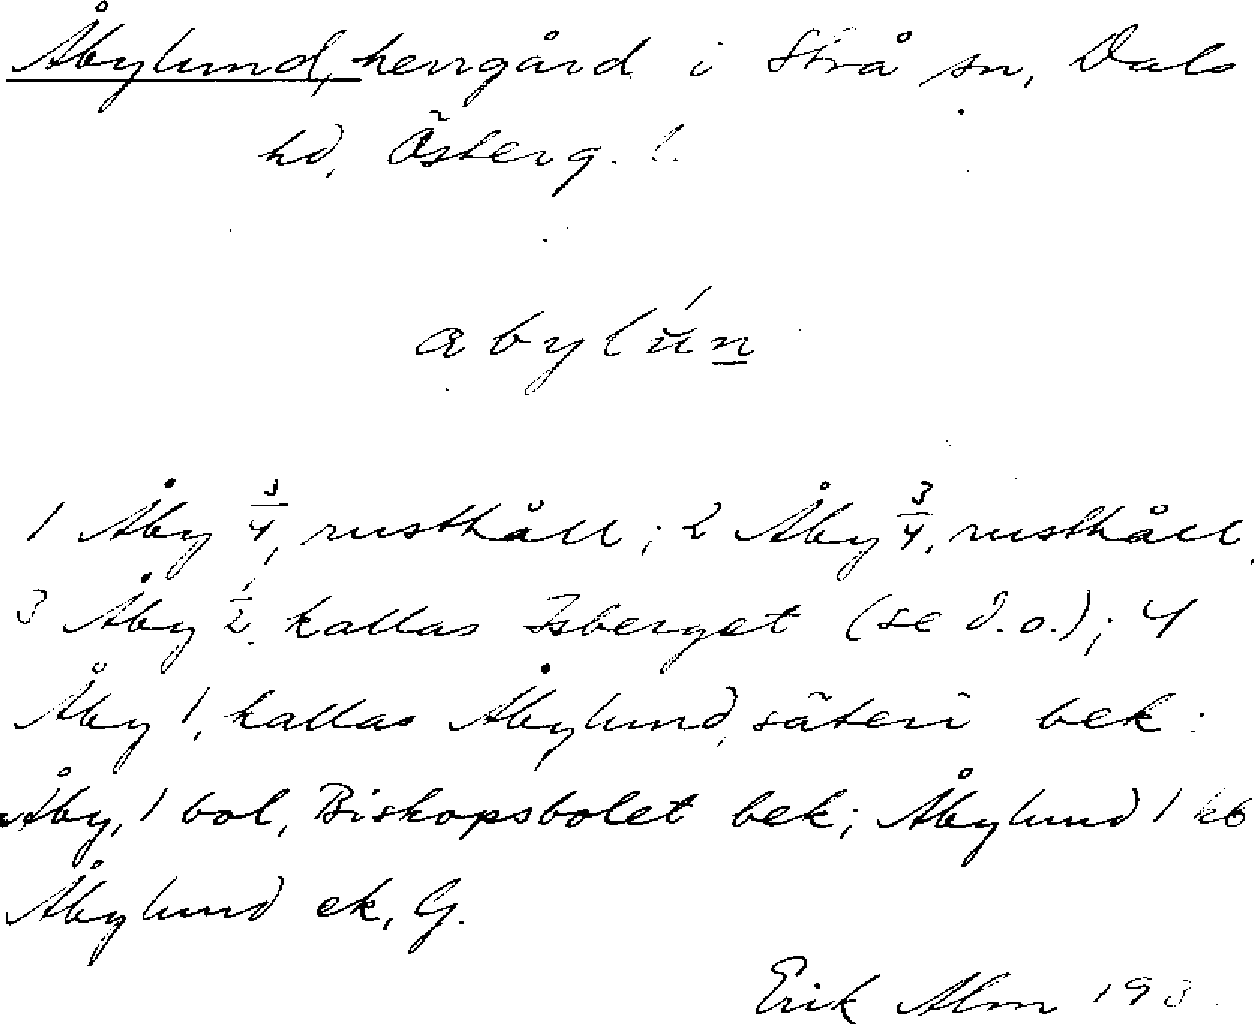 Åbylund, herrgård i Strå sn, Dals
hd, Österg. l.
abylún
1 Åby 3/4, rusthåll; 2 Åby 3/4, rusthåll
3 Åby 1/2, kallas Isberget (se d.o.); 4
Åby 1, kallas Åbylund, säteri bek:
Åby, 1 bol, Biskopsbolet bek; Åbylund 1 kb
Åbylund ek, G.
Erik Alm 193